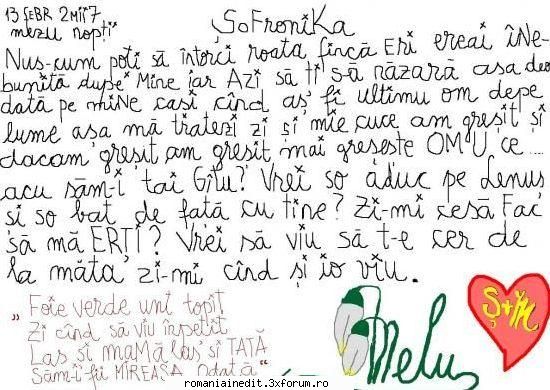 13 FEBR 2MII7
mezu nopți
SoFroniKa
Nus-cum poti să întorci roata fincă Eri ereai îNe-
bunită dupe Mine iar Azi să ți s-ă năzară asa deo
dată pe miNe casi cînd aș fi ultimu om depe
lume asa mă tratezi zi și mie cuce am greșit și
dacam greșit am gresit mai greseste OM'U ce ....
acu săm-i tai Gîtu? Vrei so aduc pe Lenuș
si so bat de fată cu tine? Zi-mi cesă Fac
să mă ERȚI? Vrei să viu să t-e cer de
la măta zi-mi cînd și io viu.
„Foie verde uni topit
Zi cînd să viu înpetit
Las si maMă las si TATĂ
Săm-i fii MIREASĂ odată"
Melu
Ș+M
romaniainedit.3xforum.ro